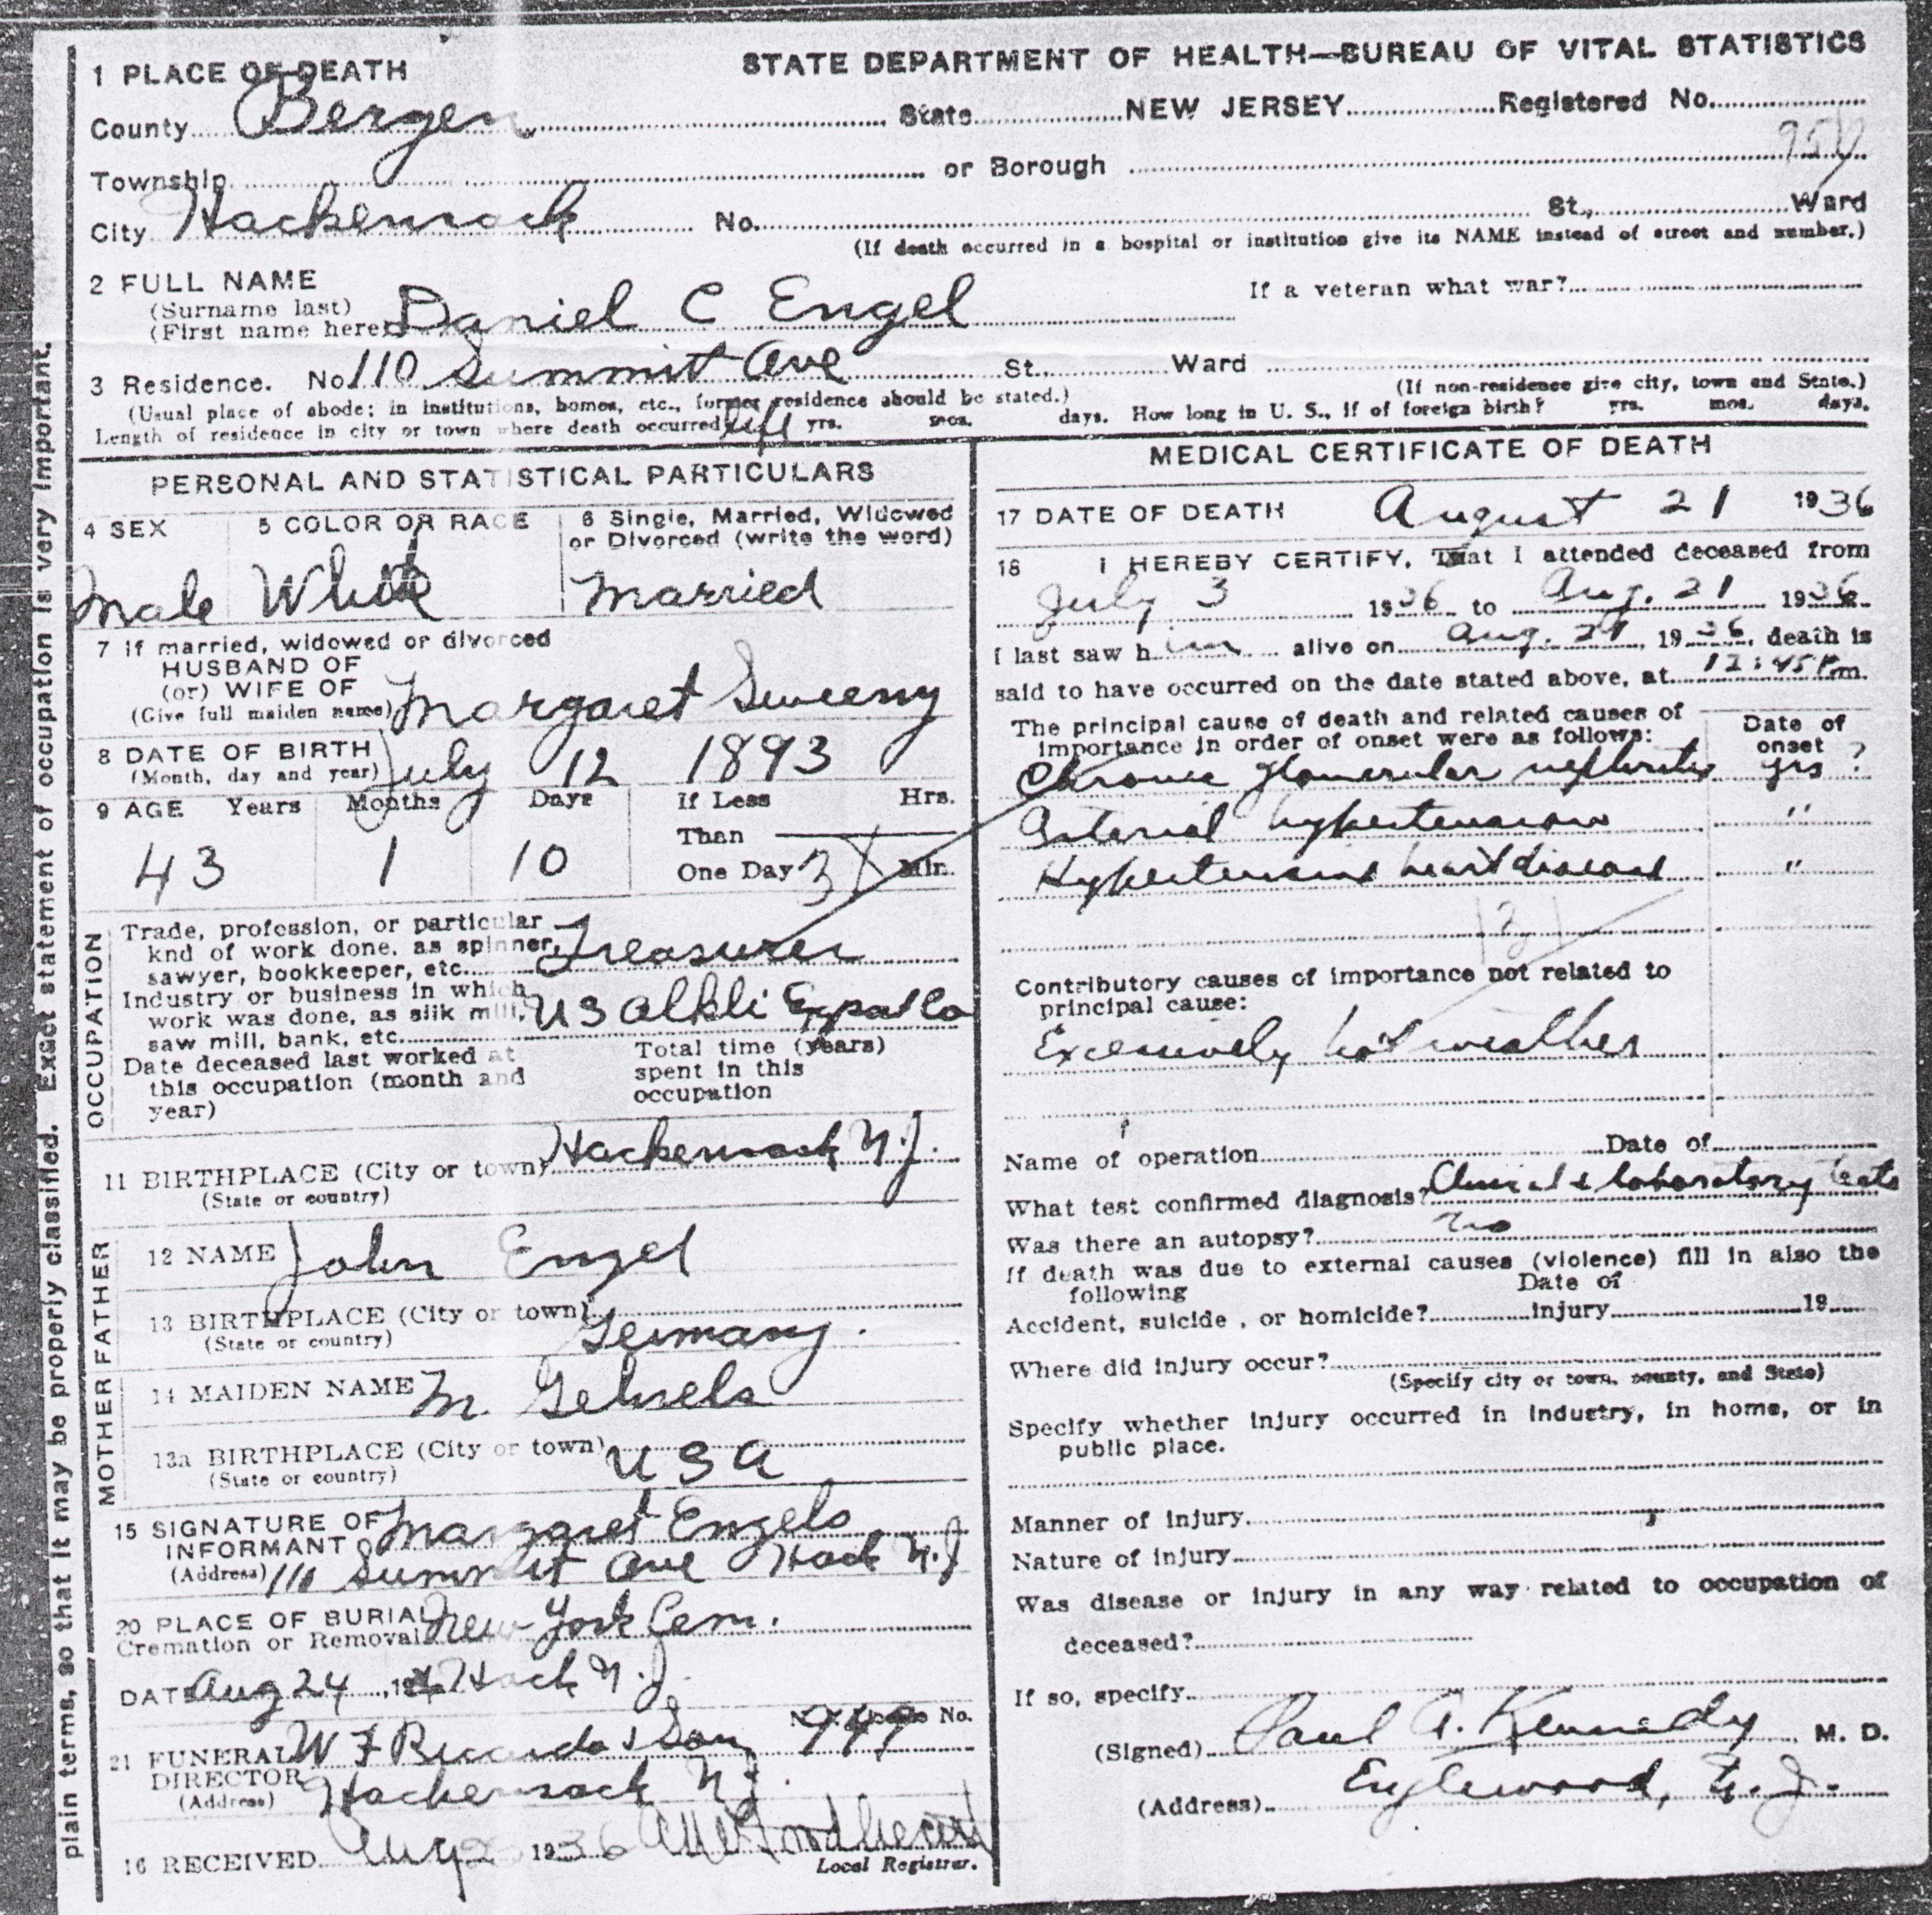 plain terms, so that it may be properly classified. Exact statement of occupation is very important.
1 PLACE OF DEATH
STATE DEPARTMENT OF HEALTH—BUREAU OF VITAL STATISTICS
County Bergen State NEW JERSEY Registered No.
Township or Borough
City Hackensack No. St., Ward
(If death occurred in a hospital or institution give its NAME instead of street and number.)
2 FULL NAME
(Surname last)
(First name here) Daniel C Engel If a veteran what war?
3 Residence. No. 110 Summit Ave St. Ward
(If non-residence give city, town and State.)
(Usual place of abode; in institutions, homes, etc., former residence should be stated.)
Length of residence in city or town where death occurred life yrs. mos. days. How long in U. S., if of foreign birth? yrs. mos. days.
PERSONAL AND STATISTICAL PARTICULARS
4 SEX 5 COLOR OR RACE 6 Single, Married, Widowed
or Divorced (write the word)
Male White Married
7 If married, widowed or divorced
HUSBAND OF
(or) WIFE OF
(Give full maiden name) Margaret Sweeny
8 DATE OF BIRTH
(Month, day and year) July 12 1893
9 AGE Years Months Days If Less Hrs.
Than
43 1 10 One Day Min.
OCCUPATION
Trade, profession, or particular
knd of work done, as spinner,
sawyer, bookkeeper, etc. Treasurer
Industry or business in which
work was done, as silk mill,
saw mill, bank, etc. US Alkli Expt Co
Date deceased last worked at
this occupation (month and
year)
Total time (years)
spent in this
occupation
11 BIRTHPLACE (City or town) Hackensack N.J.
(State or country)
FATHER
12 NAME John Engel
13 BIRTHPLACE (City or town)
(State or country) Germany.
MOTHER
14 MAIDEN NAME M. Gehrels
13a BIRTHPLACE (City or town) USA
(State or country)
15 SIGNATURE OF
INFORMANT Margaret Engels
(Address) 110 Summit Ave Hack N.J
20 PLACE OF BURIAL
Cremation or Removal New York Cem.
DATE Aug 24, 1936 Hack N.J.
License No.
21 FUNERAL
DIRECTOR W F Ricardo & Son 949
(Address) Hackensack N.J.
16 RECEIVED Aug 1936
Local Registrar.
MEDICAL CERTIFICATE OF DEATH
17 DATE OF DEATH August 21 1936
18 I HEREBY CERTIFY, That I attended deceased from
July 3 1936 to Aug. 21 1936
I last saw him alive on Aug. 21, 1936, death is
said to have occurred on the date stated above, at 12:45 P.m.
The principal cause of death and related causes of
importance in order of onset were as follows:
Date of
onset
Chronic glomerular nephritis yrs ?
Arterial hypertension "
Hypertensive heart disease "
Contributory causes of importance not related to
principal cause:
Excessively hot weather
Name of operation Date of
What test confirmed diagnosis? Clinical & laboratory tests
Was there an autopsy? no
If death was due to external causes (violence) fill in also the
following
Accident, suicide, or homicide? Date of injury 19
Where did injury occur?
(Specify city or town, county, and State)
Specify whether injury occurred in industry, in home, or in
public place.
Manner of injury
Nature of injury
Was disease or injury in any way related to occupation of
deceased?
If so, specify
(Signed) Paul A. Kennedy, M. D.
(Address) Englewood, N. J.